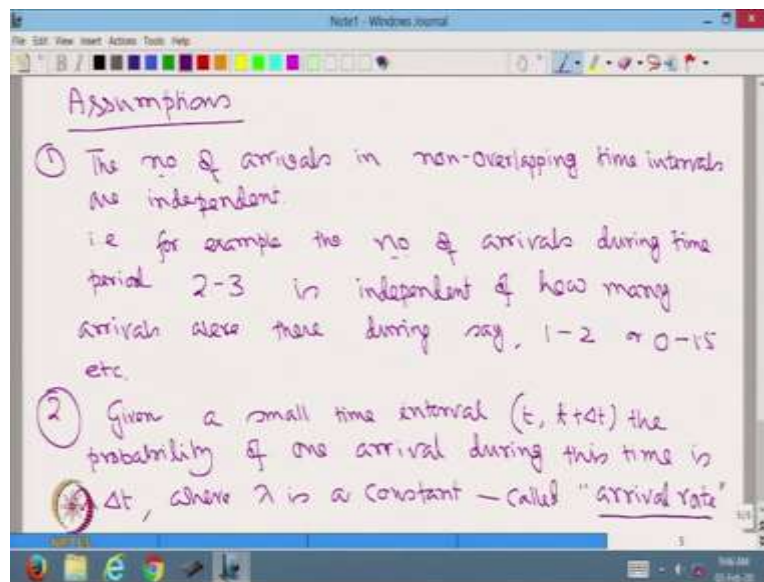 Note1 - Windows Journal
File Edit View Insert Actions Tools Help
Assumptions
① The no of arrivals in non-overlapping time intervals
are independent.
i.e for example the no of arrivals during time
period 2-3 is independent of how many
arrivals were there during say, 1-2 or 0-1.5
etc.
② Given a small time interval (t, t+Δt) the
probability of one arrival during this time is
Δt, where λ is a constant - called "arrival rate"